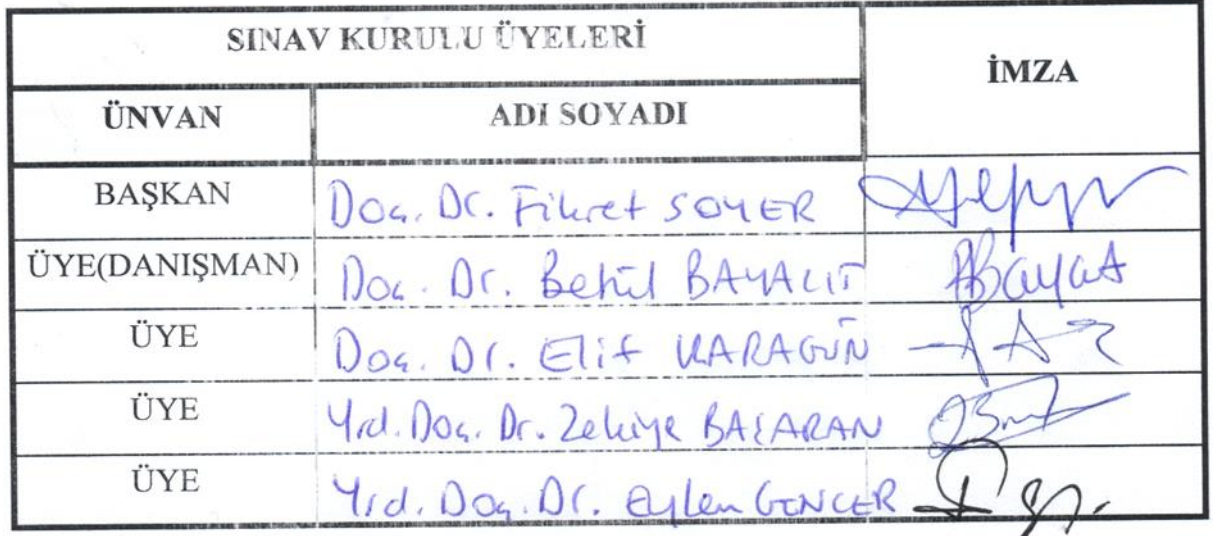 SINAV KURULU ÜYELERİ
İMZA
ÜNVAN ADI SOYADI
BAŞKAN Doç. Dr. Fikret SOYER
ÜYE(DANIŞMAN) Doç. Dr. Betül BAYAZIT
ÜYE Doç. Dr. Elif KARAGÜN
ÜYE Yrd. Doç. Dr. Zekiye BAŞARAN
ÜYE Yrd. Doç. Dr. Eylem GENCER